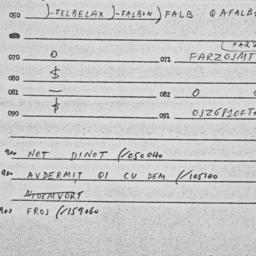 050 )-FELBELAX)-FALBON)FALB @AFALB
FARZ
070 0 071 FARZOJMT
080 $
081 — 082 0 0
090 $ 091 OJZGPJOFT
900 NOT DINOT (/050040
900 AVDERMIT QI CU DEM (/105100
NTOEMVORT
900 FROJ (/159060